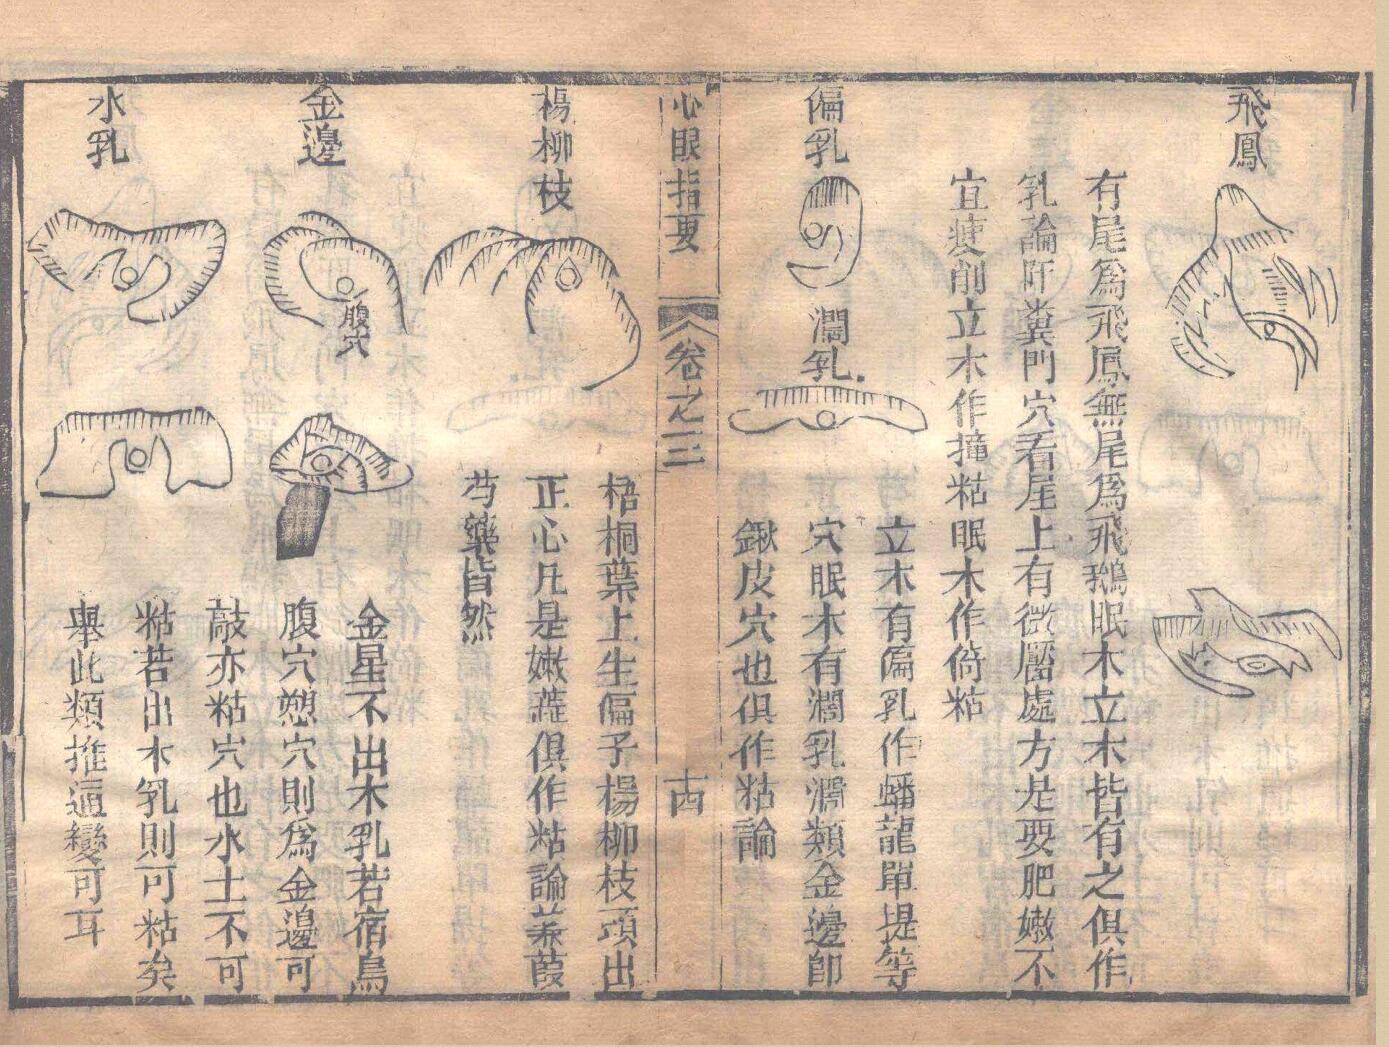 飛鳳
有尾爲飛鳳無尾爲飛鵝眠木立木皆有之俱作
乳論阡糞門穴看尾上有微壓處方是要肥嫩不
宜瘦削立木作撞粘眠木作倚粘
偏乳
濶乳
立木有偏乳作蟠龍單提等
穴眠木有濶乳濶類金邊即
鍬皮穴也俱作粘論
心眼指要
卷之三
十四
楊柳枝
梧桐葉上生偏子楊柳枝頭出
正心凡是嫩蕋俱作粘論蒹葭
芍藥皆然
金邊
腹穴
金星不出木乳若宿鳥
腹穴戀穴則爲金邊可
敲亦粘穴也水土不可
粘若出木乳則可粘矣
舉此類推通變可耳
水乳